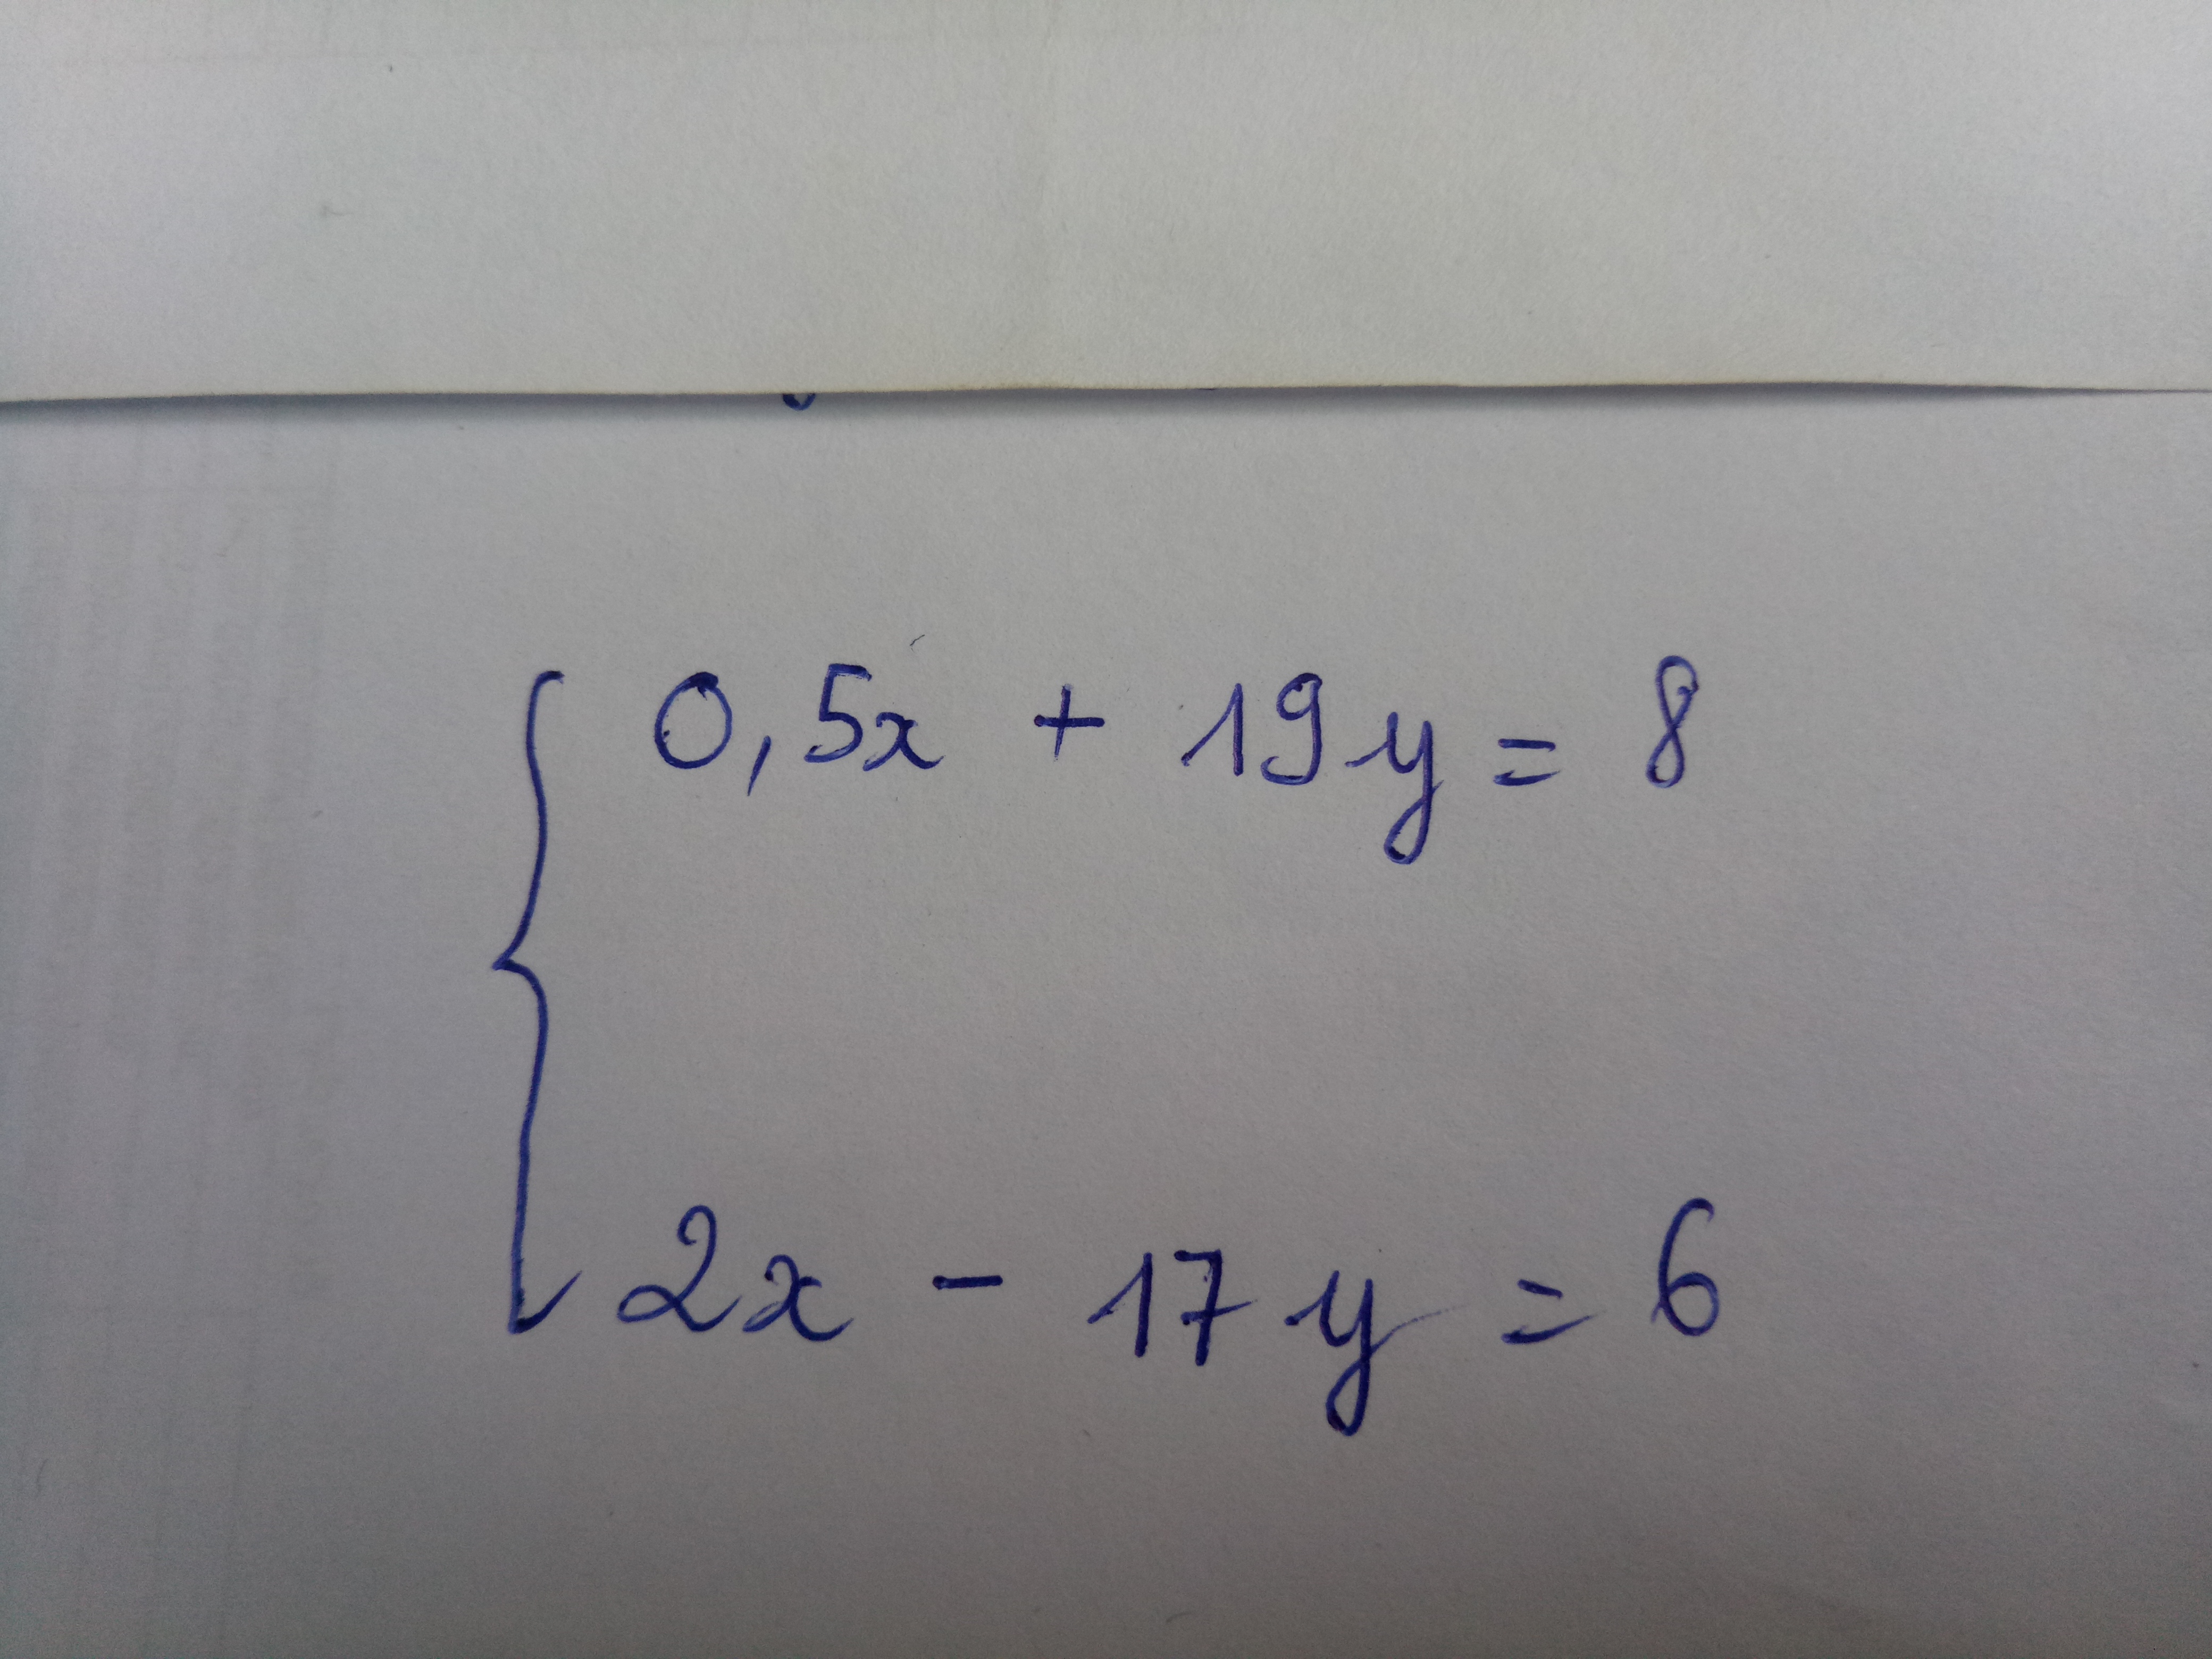 0,5x + 19y = 8
2x - 17y = 6